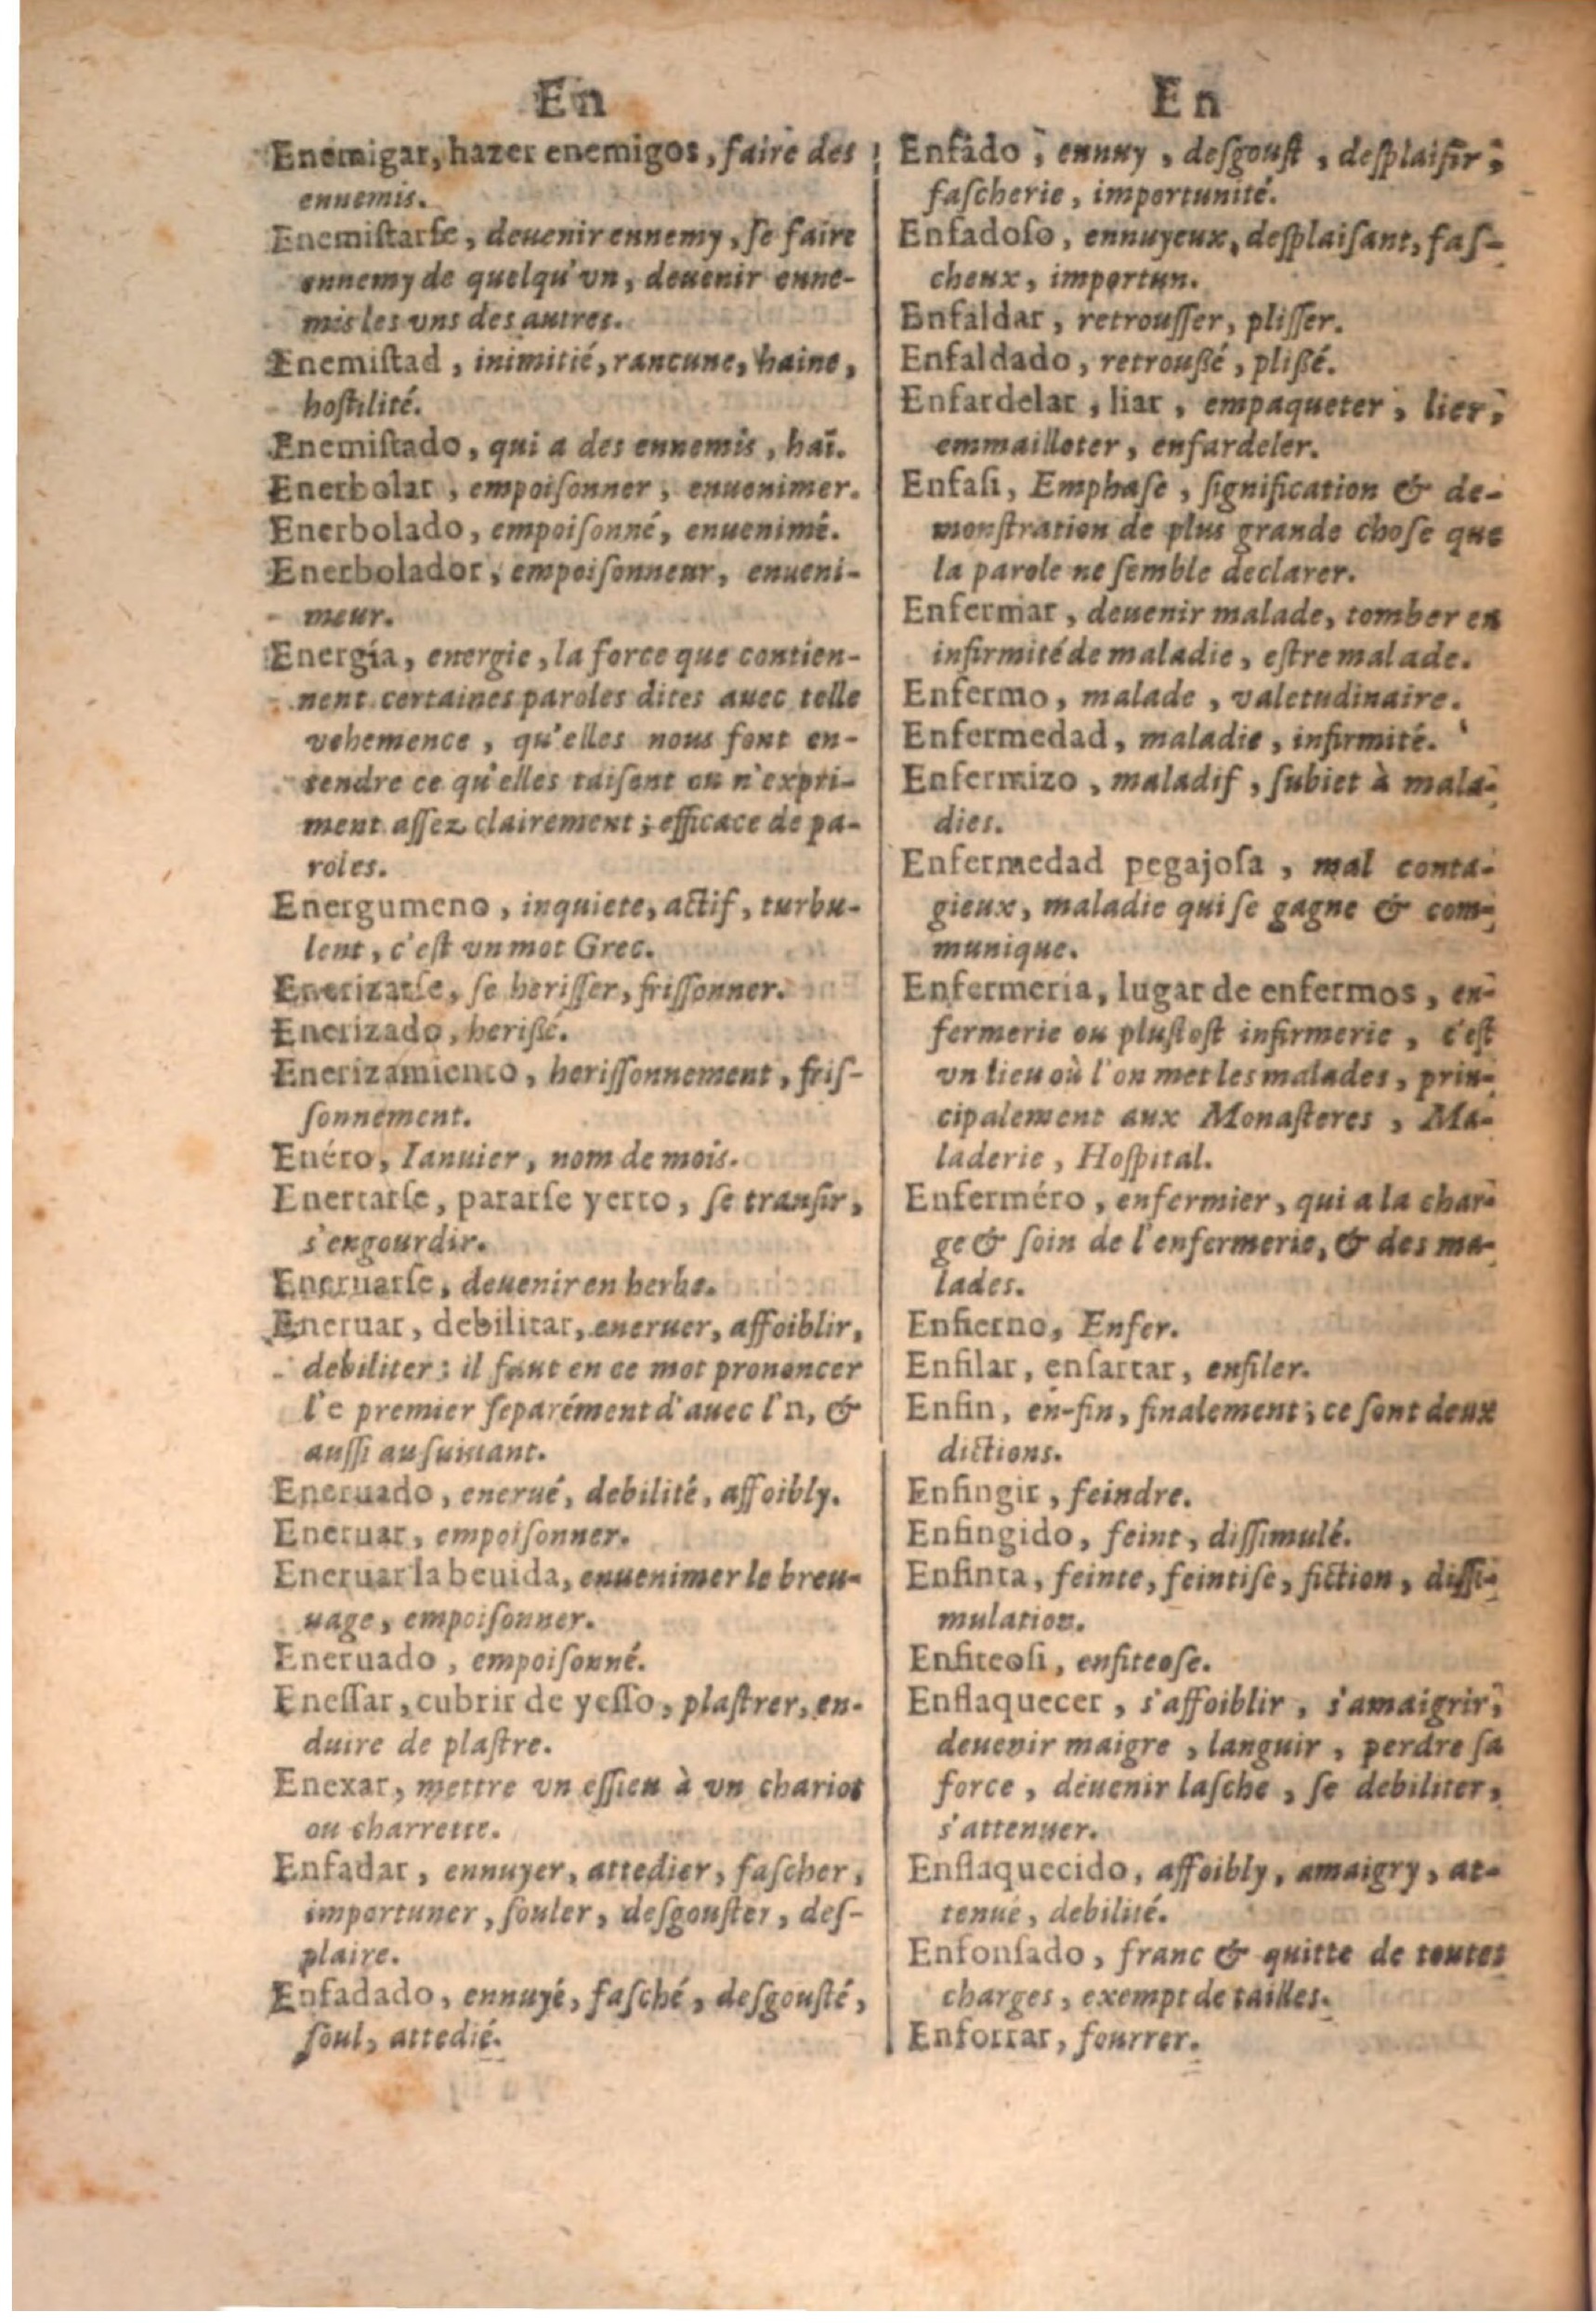 En
Enemigar, hazer enemigos, faire des
ennemis.
Enemiſtarſe, deuenir ennemy, ſe faire
ennemy de quelqu'vn, deuenir enne-
mis les vns des autres.
Enemiſtad, inimitié, rancune, haine,
hoſtilité.
Enemiſtado, qui a des ennemis, haï.
Enerbolar, empoiſonner, enuenimer.
Enerbolado, empoiſonné, enuenimé.
Enerbolador, empoiſonneur, enueni-
meur.
Energía, energie, la force que contien-
nent certaines paroles dites auec telle
vehemence, qu'elles nous font en-
tendre ce qu'elles taiſent ou n'expri-
ment aſſez clairement; efficace de pa-
roles.
Energumeno, inquiete, actif, turbu-
lent, c'eſt vn mot Grec.
Enerizarſe, ſe heriſſer, friſſonner.
Enerizado, heriſſé.
Enerizamiento, heriſſonnement, friſ-
ſonnement.
Enéro, Ianuier, nom de mois.
Enertarſe, pararſe yerto, ſe tranſir,
s'engourdir.
Eneruarſe, deuenir en herbe.
Eneruar, debilitar, eneruer, affoiblir,
debiliter: il faut en ce mot prononcer
l'e premier ſeparément d'auec l'n, &
auſſi au ſuiuant.
Eneruado, enerué, debilité, affoibly.
Eneruar, empoiſonner.
Eneruar la beuida, enuenimer le breu-
uage, empoiſonner.
Eneruado, empoiſonné.
Eneſſar, cubrir de yeſſo, plaſtrer, en-
duire de plaſtre.
Enexar, mettre vn eſſieu à vn chariot
ou charrette.
Enfadar, ennuyer, attedier, faſcher,
importuner, ſouler, deſgouſter, deſ-
plaire.
Enfadado, ennuyé, faſché, deſgouſté,
ſoul, attedié.
En
Enfado, ennuy, deſgouſt, deſplaiſir,
faſcherie, importunité.
Enfadoſo, ennuyeux, deſplaiſant, faſ-
cheux, importun.
Enfaldar, retrouſſer, pliſſer.
Enfaldado, retrouſſé, pliſſé.
Enfardelar, liar, empaqueter, lier,
emmailloter, enfardeler.
Enfaſi, Emphaſe, ſignification & de-
monſtration de plus grande choſe que
la parole ne ſemble declarer.
Enfermar, deuenir malade, tomber en
infirmité de maladie, eſtre malade.
Enfermo, malade, valetudinaire.
Enfermedad, maladie, infirmité.
Enfermizo, maladif, ſubiet à mala-
dies.
Enfermedad pegajoſa, mal conta-
gieux, maladie qui ſe gagne & com-
munique.
Enfermeria, lugar de enfermos, en-
fermerie ou pluſtoſt infirmerie, c'eſt
vn lieu où l'on met les malades, prin-
cipalement aux Monaſteres, Ma-
laderie, Hoſpital.
Enferméro, enfermier, qui a la char-
ge & ſoin de l'enfermerie, & des ma-
lades.
Enfierno, Enfer.
Enfilar, enſartar, enfiler.
Enfin, en-fin, finalement; ce ſont deux
dictions.
Enfingir, feindre.
Enfingido, feint, diſſimulé.
Enfinta, feinte, feintiſe, fiction, diſſi-
mulation.
Enfiteoſi, enfiteoſe.
Enflaquecer, s'affoiblir, s'amaigrir,
deuenir maigre, languir, perdre ſa
force, deuenir laſche, ſe debiliter,
s'attenuer.
Enflaquecido, affoibly, amaigry, at-
tenué, debilité.
Enfonſado, franc & quitte de toutes
charges, exempt de tailles.
Enforrar, fourrer.